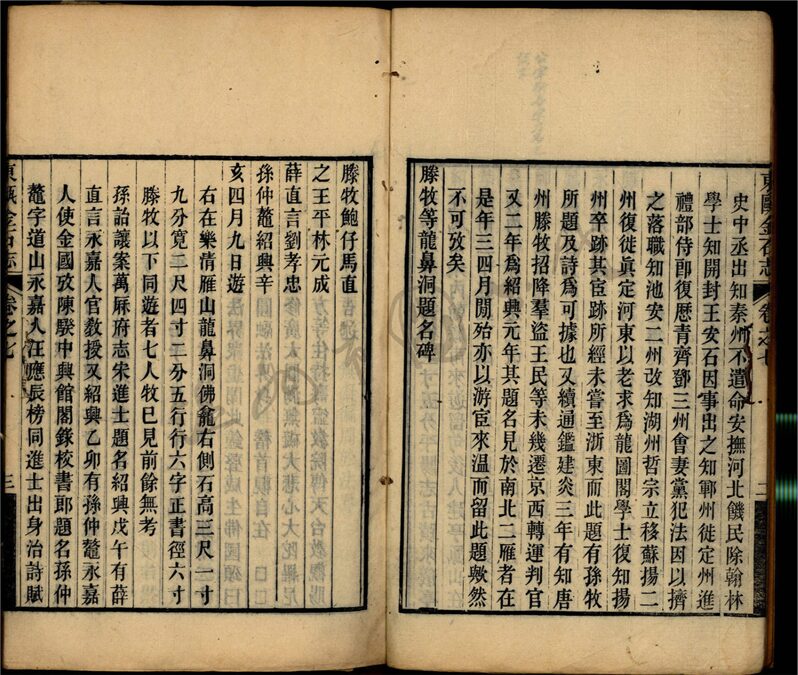 東甌金石志 卷之七 二
史中丞出知秦州不遣命安撫河北饑民除翰林
學士知開封王安石因事出之知鄆州徙定州進
禮部侍郎復歷青齊鄧三州會妻黨犯法因以擠
之落職知池安二州改知湖州哲宗立移蘇揚二
州復徙眞定河東以老求爲龍圖閣學士復知揚
州卒跡其宦跡所經未嘗至浙東而此題有孫牧
所題及詩爲可據也又續通鑑建炎三年有知唐
州滕牧招降羣盜王民等未幾遷京西轉運判官
又二年爲紹興元年其題名見於南北二雁者在
是年三四月閒殆亦以游宦來溫而留此題歟然
不可攷矣
滕牧等龍鼻洞題名碑
滕牧鮑仔馬直
之王平林元成
薛直言劉孝忠
孫仲鼇紹興辛
亥四月九日遊
右在樂淸雁山龍鼻洞佛龕右側石高三尺一寸
九分寬二尺四寸二分五行行六字正書徑六寸
滕牧以下同遊者七人牧已見前餘無考
孫詒讓案萬厤府志宋進士題名紹興戊午有薛
直言永嘉人官敎授又紹興乙卯有孫仲鼇永嘉
人使金國攷陳騤中興館閣錄校書郎題名孫仲
鼇字道山永嘉人汪應辰榜同進士出身治詩賦
東甌金石志 卷之七 三